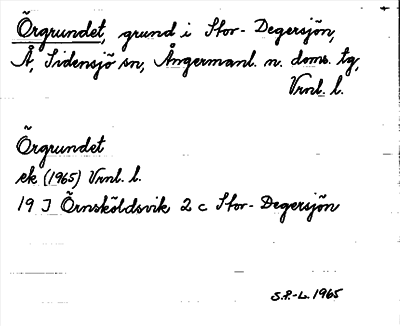 Örgrundet, grund i Stor-Degersjön,
Å, Sidensjö sn, Ångermanl. n. doms. tg,
Vrnl. l.
Örgrundet
ek (1965) Vrnl. l.
19 J Örnsköldsvik 2 c Stor-Degersjön
S.P.-L. 1965